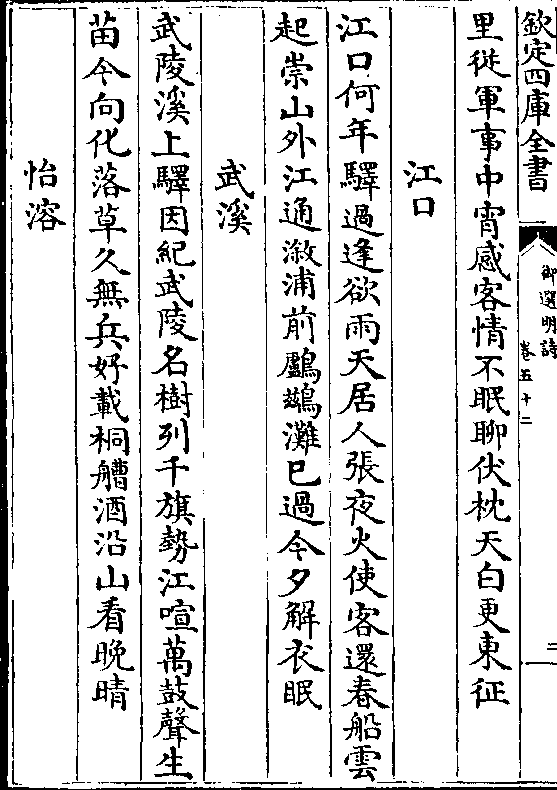 欽定四庫全書
御選明詩
卷五十二
二
里從軍事中宵感客情不眠聊伏枕天白更東征
江口
江口何年驛過逢欲雨天居人張夜火使客還春船雲
起崇山外江通溆浦前鸕鷀灘已過今夕解衣眠
武溪
武陵溪上驛因紀武陵名樹列千旗勢江喧萬鼓聲生
苗今向化落草久無兵好載桐艚酒沿山看晚晴
怡溶